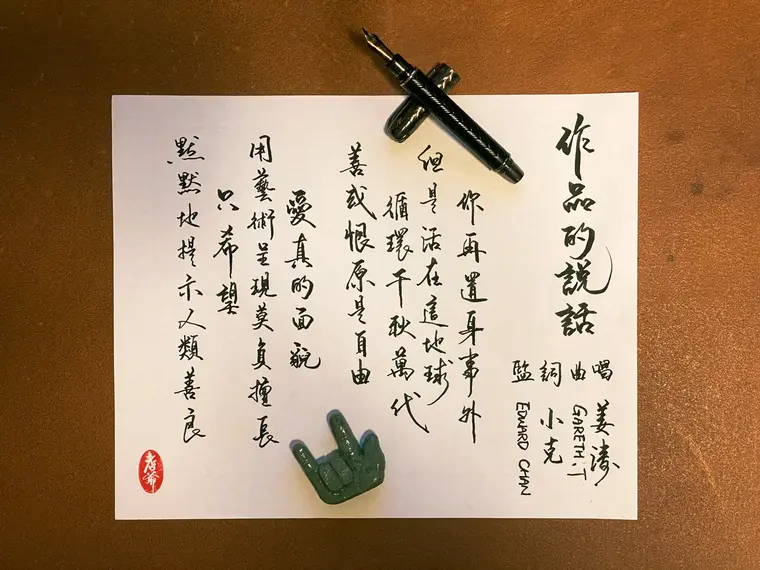 作品的說話
唱 姜濤
曲 GARETH.T
詞 小克
監 EDWARD CHAN
你再置身事外
但是活在這地球
循環千秋萬代
善或恨原是自由
愛真的面貌
用藝術呈現莫負擅長
只希望
默默地提示人類善良